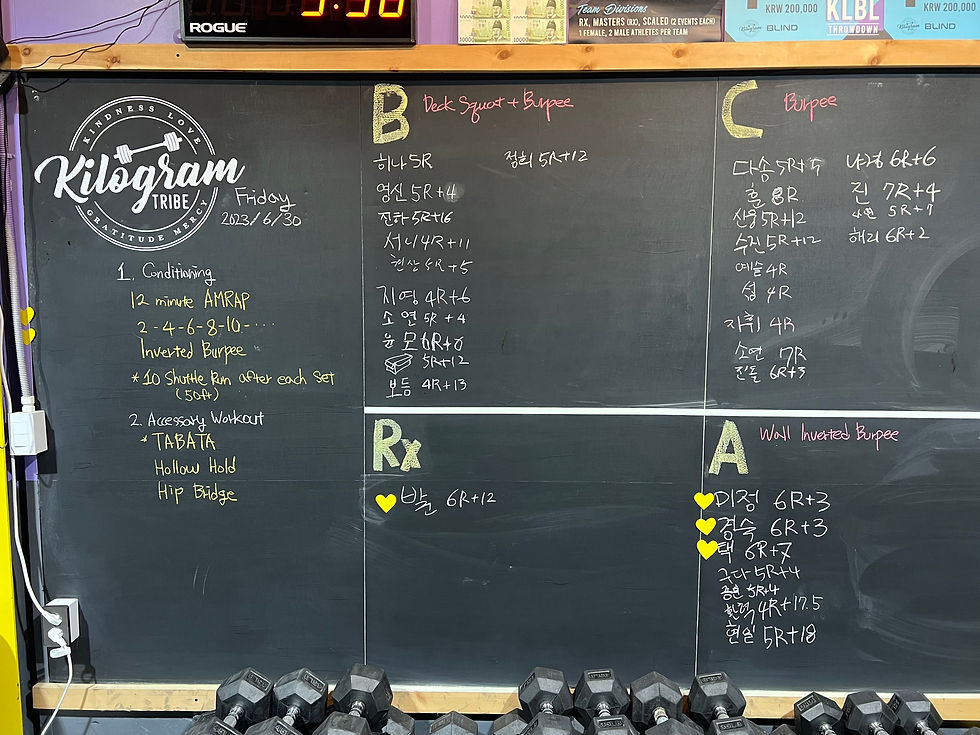 ROGUE
Team Divisions
RX, MASTERS (RX), SCALED (2 EVENTS EACH)
1 FEMALE, 2 MALE ATHLETES PER TEAM
KRW 200,000
BLIND
KLBL
THROWDOWN
KRW 200,000
BLIND
KINDNESS LOVE
Kilogram
TRIBE
GRATITUDE MERCY
Friday
2023/6/30
1. Conditioning
12 minute AMRAP
2-4-6-8-10-····
Inverted Burpee
* 10 Shuttle Run after each set
(50ft)
2. Accessory Workout
* TABATA
Hollow Hold
Hip Bridge
B Deck Squat + Burpee
하나 5R
영신 5R+4
진하 5R+16
서니 4R+11
5R+5
지영 4R+6
소연 5R+4
윤모
5R+12
보듬 4R+13
정희 5R+12
C Burpee
다솜 5R+5
훈 8R
산웅 5R+12
수진 5R+12
예슬 4R
섭 4R
자휘 4R
소연 7R
진돌 6R+3
6R+6
진 7R+4
5R+7
해리 6R+2
Rx
발 6R+12
A Wall Inverted Burpee
미정 6R+3
경숙 6R+3
택 6R+7
5R+4
5R+4
4R+17.5
현일 5R+18